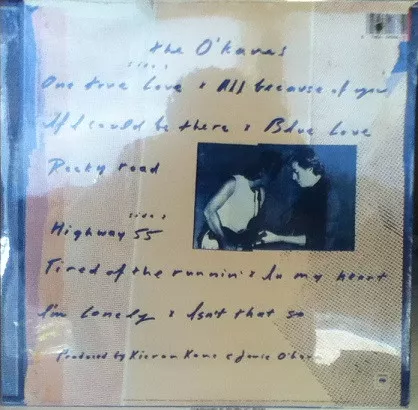 the O'kanes
side 1
One true Love × All because of you
If I could be there × Blue Love
Rocky road
side 2
Highway 55
Tired of the runnin' × In my heart
I'm lonely × Isn't that so
Produced by Kieran Kane & Jamie O'hara